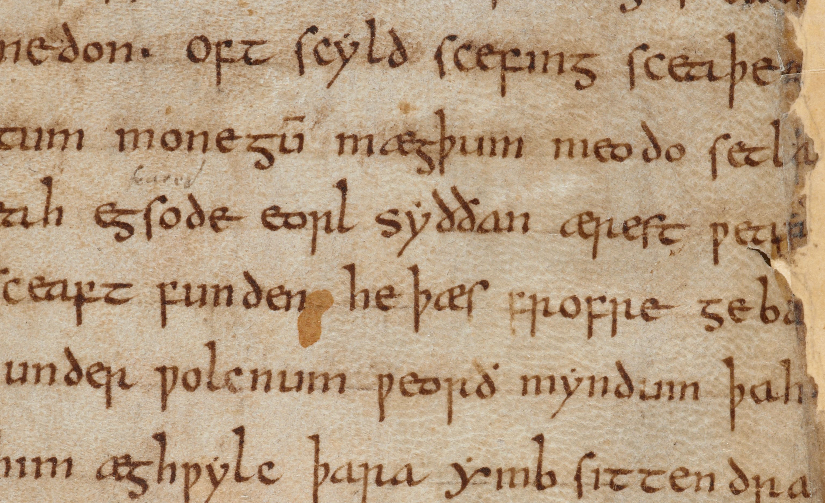 nedon. oft scyld scefing sceaþe
tum monegū mægþum meodo setla
feared
ah egsode eorl syððan ærest ƿear
sceaft funden he þæs frofre geba
under ƿolcnum ƿeorð myndum þah
him æghƿylc þara ymb sittendra